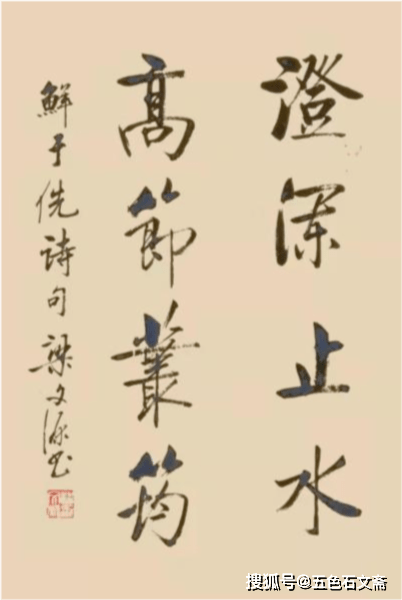 澄深止水
高節叢筠
鮮于侁詩句 梁文源书
搜狐号@五色石文斋